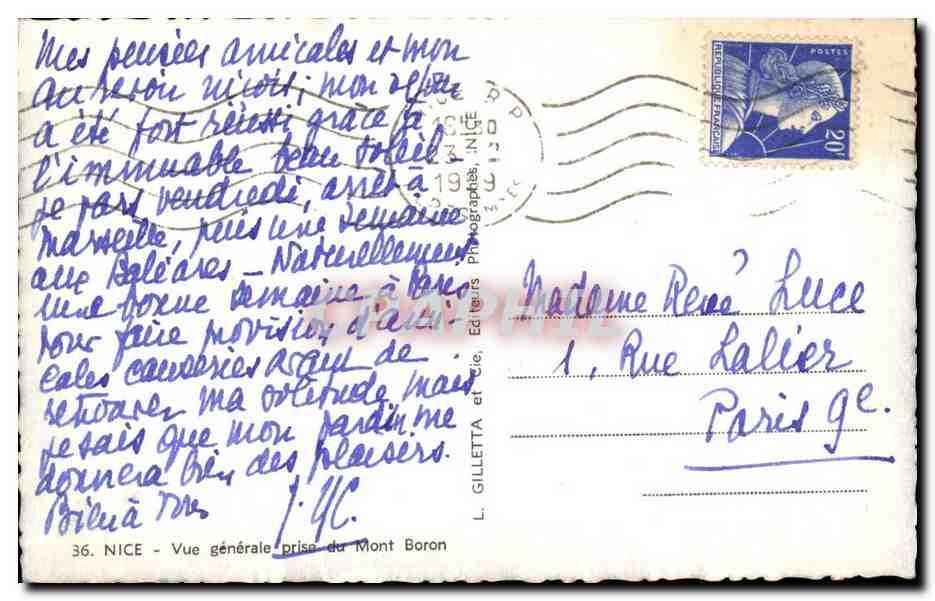 Mes pensées amicales et mon
au revoir niçois, mon séjour
a été fort réussi grâce à
l'immuable beau soleil –
Je pars vendredi, arrêt à
Marseille, puis une semaine
aux Baléares – Naturellement
une bonne semaine à Paris
pour faire provision d'ami-
cales causeries avant de
retrouver ma solitude, mais
je sais que mon jardin me
donnera bien des plaisirs.
Bien à vous
36. NICE - Vue générale prise du Mont Boron
L. GILLETTA et Cie, Editeurs Photographes, NICE
POSTES
REPUBLIQUE FRANÇAISE
20F
Madame René Luce
1, Rue Lallier
Paris 9e.
CPARAMA PHIL